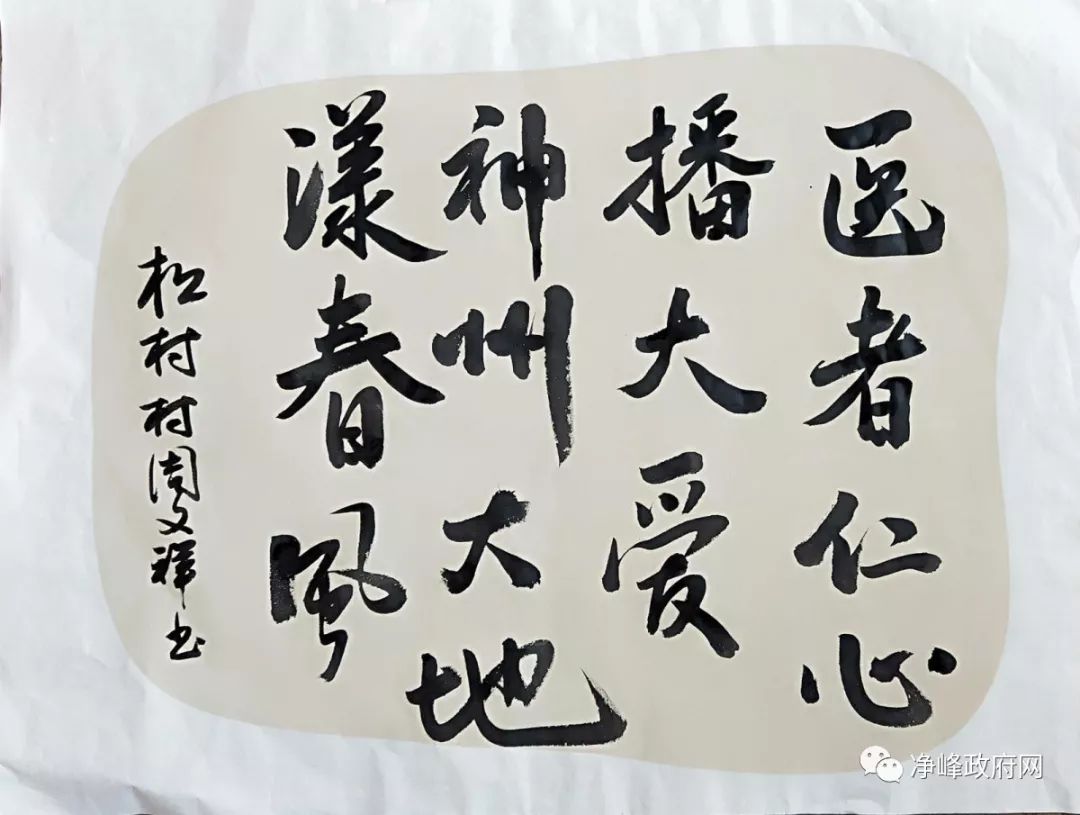 医者仁心
播大爱
神州大地
漾春風
松村村周文辉书
净峰政府网